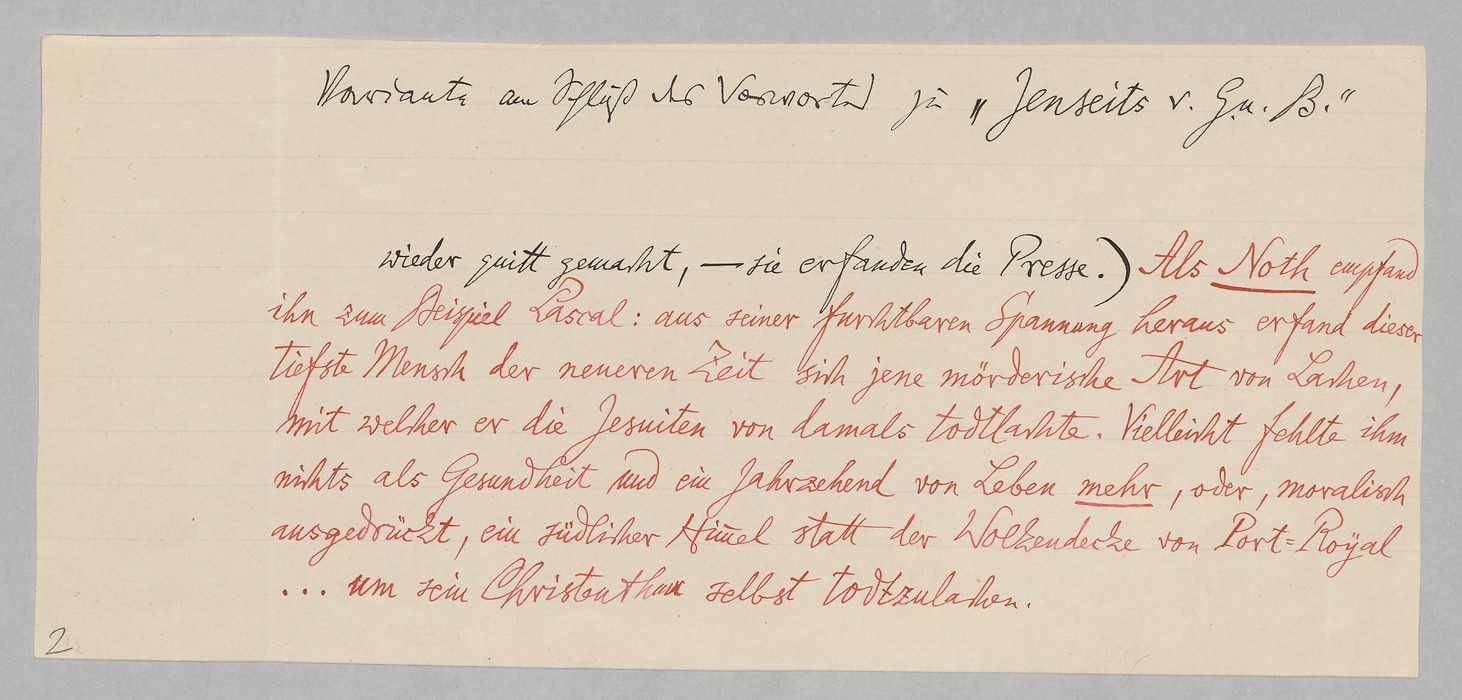 Variante am Schluß des Vorworts zu „Jenseits v. G. u. B.“
wieder quitt gemacht, — sie erfanden die Presse.) Als Noth empfand
ihn zum Beispiel Pascal: aus seiner furchtbaren Spannung heraus erfand dieser
tiefste Mensch der neueren Zeit sich jene mörderische Art von Lachen,
mit welcher er die Jesuiten von damals todtlachte. Vielleicht fehlte ihm
nichts als Gesundheit und ein Jahrzehend von Leben mehr, oder, moralisch
ausgedrückt, ein südlicher Him̄el statt der Wolkendecke von Port=Royal
... um sein Christenthum selbst todtzulachen.
2